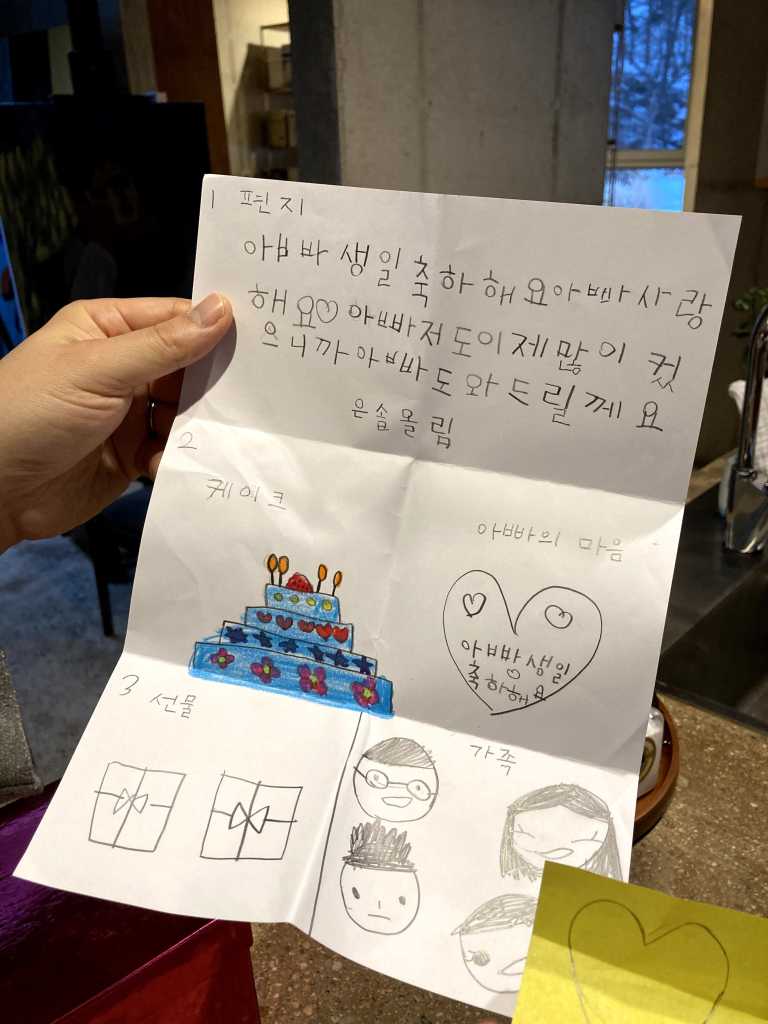 1 편지
아빠 생일축하해요아빠사랑
해요♡아빠저도이제많이 컸
으니까아빠도와드릴께요
은솔올림
2
케이크
아빠의 마음
아빠생일
축하해요
3 선물
가족